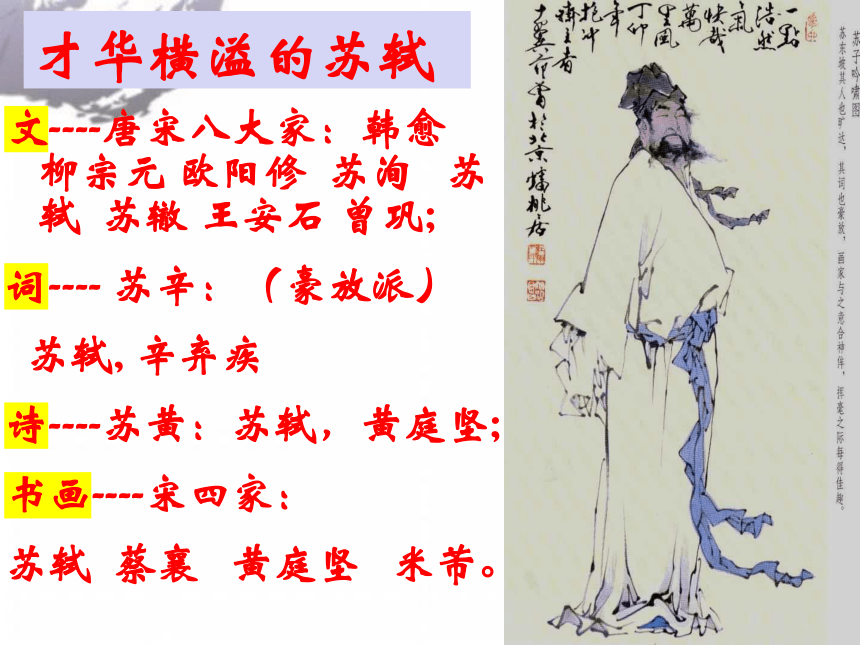 才华横溢的苏轼
文----唐宋八大家：韩愈
柳宗元 欧阳修 苏洵 苏
轼 苏辙 王安石 曾巩;
词---- 苏辛：（豪放派）
苏轼, 辛弃疾
诗----苏黄：苏轼，黄庭坚;
书画----宋四家：
苏轼 蔡襄 黄庭坚 米芾。
一點
浩然
氣
快哉
萬
里風
丁卯
年
抱冲
齋主者
十翼范曾於北京
蟠桃居
苏子吟啸图
苏东坡其人也旷达，其词也豪放，画家与之意合神侔，挥毫之际每得佳趣。